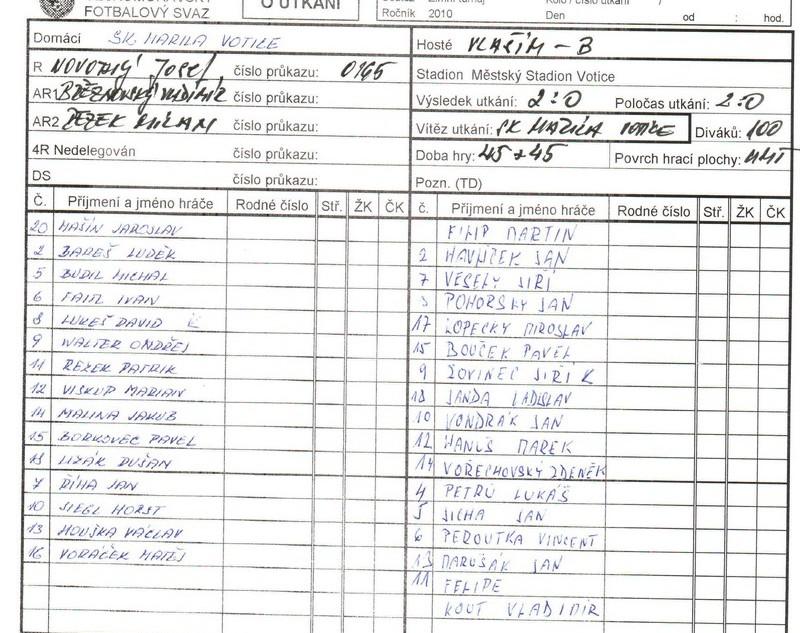 FOTBALOVÝ SVAZ
O UTKÁNÍ
Ročník 2010
Den od : hod.
Domácí SK MARILA VOTICE
Hosté VLAŠIM - B
R NOVOTNÝ JOSEF číslo průkazu: 0165
Stadion Městský Stadion Votice
AR1 číslo průkazu:
Výsledek utkání: 2:0 Poločas utkání: 2:0
AR2 číslo průkazu:
Vítěz utkání: SK MARILA VOTICE Diváků: 100
4R Nedelegován číslo průkazu:
Doba hry: 45+45 Povrch hrací plochy: UMT
DS číslo průkazu:
Pozn. (TD)
Č. Příjmení a jméno hráče Rodné číslo Stř. ŽK ČK
č. Příjmení a jméno hráče Rodné číslo Stř. ŽK ČK
20 MAŠÍN JAROSLAV
2 BAREŠ LUDĚK
5 BUDIL MICHAL
6 IVAN
8 LUKEŠ DAVID K
9 WALTER ONDŘEJ
11 REZEK PATRIK
12 VISKUP MARIAN
14 MALINA JAKUB
15 BORKOVEC PAVEL
18 LIZÁK DUŠAN
7 ŘÍHA JAN
10 SIEGL HORST
13 HOUŠKA VÁCLAV
16 VORÁČEK MATĚJ
FILIP MARTIN
2 HAVLÍČEK JAN
7 VESELÝ JIŘÍ
3 POHORSKÝ JAN
17 LOPECKÝ MIROSLAV
15 BOUČEK PAVEL
9 JOVINEC JIŘÍ K
18 JANDA LADISLAV
10 VONDRÁK JAN
12 HANUŠ MAREK
14 VOŘECHOVSKÝ ZDENĚK
4 PETRŮ LUKÁŠ
5 SICHA JAN
6 PEROUTKA VINCENT
13 MARUŠÁK JAN
11 FELIPE
KOUT VLADIMÍR